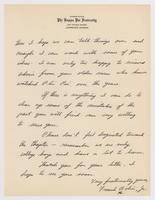 Phi Kappa Psi Fraternity
Here I hope we can talk things over and
maybe I can work with some of your
ideas. I am only too happy to receive
advice from your older men who have
watched Phi Psi over the years.
If this is anything I can do to
clear up some of the mistakes of the
past you will find me very willing
to save you.
Please don't feel disgusted toward
the Chapter - remember we are only
college boys and have a lot to learn.
Thank you for your letter, I
hope to see you soon.
Very fraternally yours,
Frank
Jr.